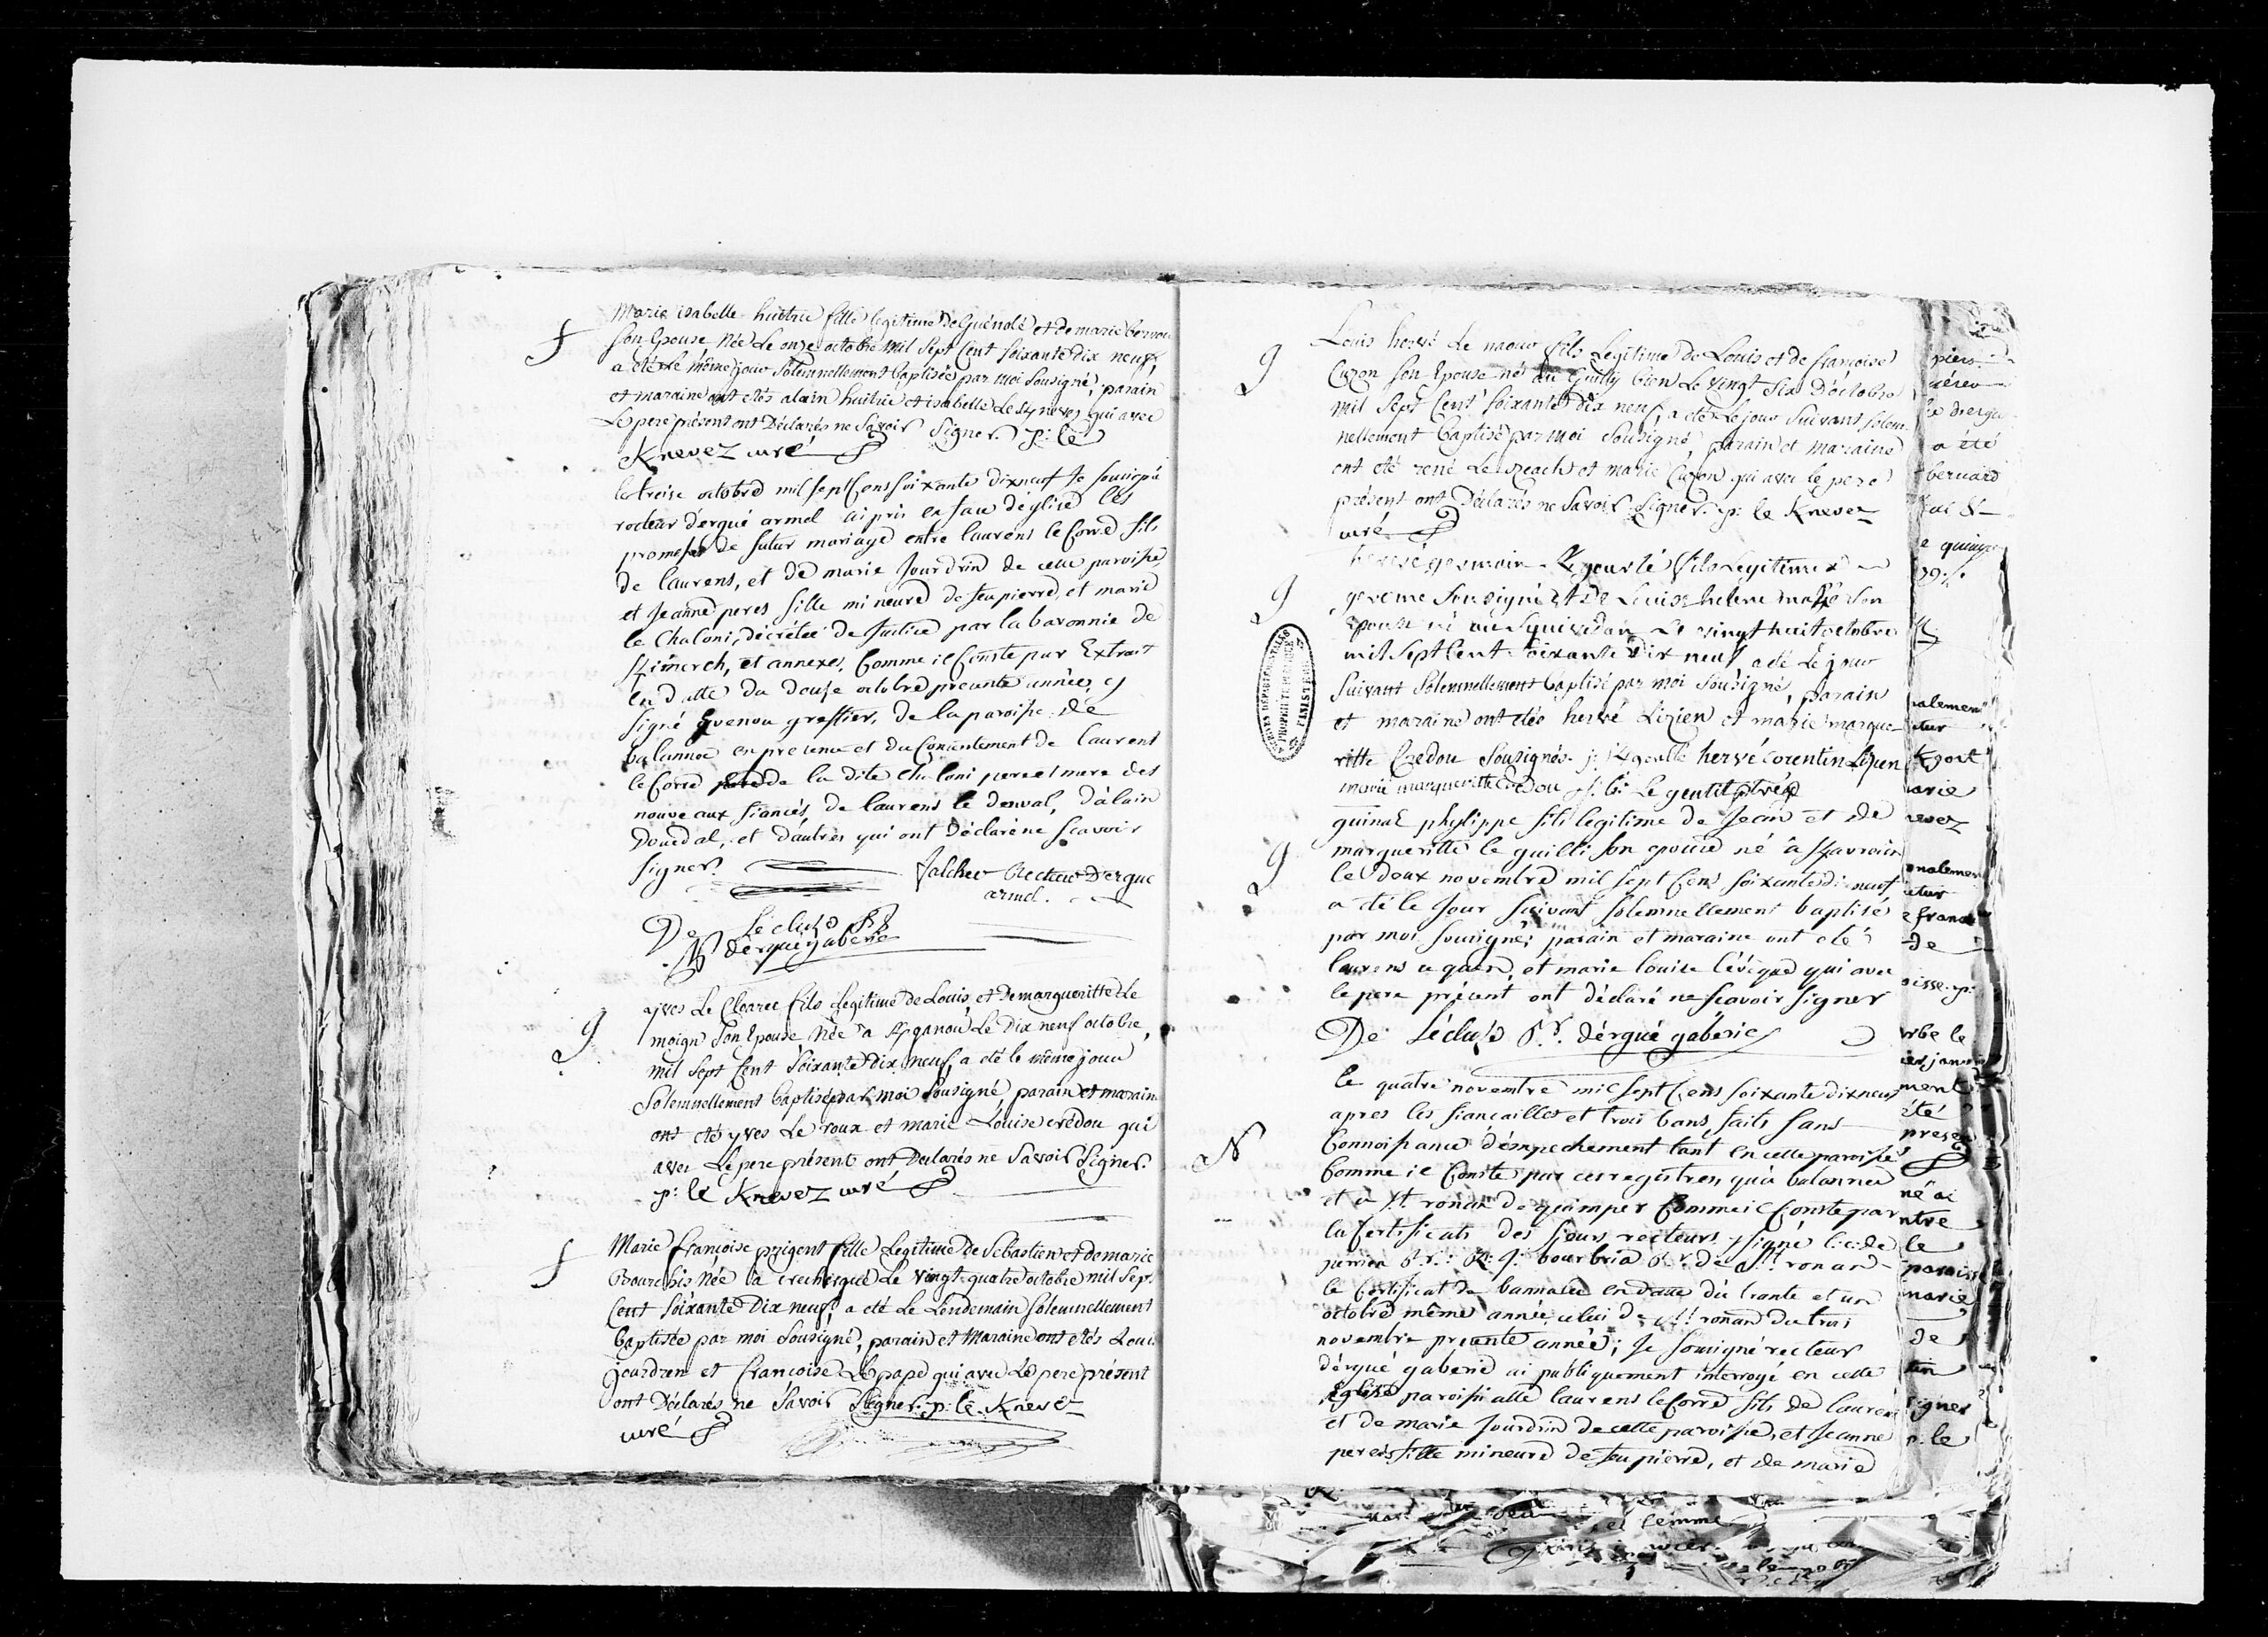 f
Marie isabelle huitric fille legitime De Guénolé et de marie
son Epouse Née Le onze octobre mil Sept Cent soixante Dix neuf,
a été le même jour Solemnellement baptisée par moi Sousigné, parain
et maraine ont étés alain huitric et isabelle qui avec
Le pere présent ont Déclarés ne Savoir Signer. p: le
Knevez curé
le treise octobre mil sept Cens soixante dixneuf Je soussigné
recteur d'ergué armel ai pris en face d'église les
promesses de futur mariage entre laurens le Corre fils
de laurens, et de marie Jourdrin de cette paroisse,
et Jeanne peres fille mineure de feu pierre, et marie
le Chaloni, décrétée de Justice par la baronnie de
et annexes, Comme il Conste par Extrait
en datte du douse octobre presente année,
signé greffier, de la paroisse de
balannec en presence et du Consentement de laurens
le Corre de la dite Chaloni pere et mere des
nouveaux fiancés, de laurens le denval, d'alain
Douedal, et d'autres qui ont déclaré ne scavoir
signer. falcher Recteur D'ergue
armel.
De Lécluse
d'ergue gaberic
g
yves Le Cloarec fils Legitime de Louis, et De margueritte Le
moign Son Epouse Née a Le Dix neuf octobre
mil Sept Cent Soixante Dix neuf, a été le même jour
Solemnellement baptisé par moi Sousigné, parain et maraine
ont étés yves Le roux et marie Louise crédou qui
avec Le pere présent ont Declarés ne Savoir Signer.
p: le Knevez curé
f
Marie françoise prigent fille Legitime de Sébastien et de marie
Bourchis Née a Le vingt quatre octobre mil Sept
Cent Soixante Dix neuf, a été Le Lendemain Solemnellement
baptisée par moi Sousigné, parain et Maraine ont étés Louis
jourdren et françoise Le pape qui avec Le pere présent
ont Déclarés ne Savoir Signer. p: le Knevez
curé
g
Louis hervé Le naour fils Legitime de Louis et de françoise
Cuzon son Epouse né au Guilly bien Le vingt Six D'octobre
mil Sept Cent Soixante Dix neuf, a été le jour Suivant Solem-
nellement baptisé par moi Sousigné, parain et maraine
ont été rené et marie Cuzon qui avec le pere
présent ont Déclarés ne Savoir Signer. p: le Knevez
curé
g
fils Legitime
Sousigné et De Louise helene son
Epouse né au Le vingt huit octobre
mil Sept Cent Soixante Dix neuf, a été Le jour
Suivant Solemnellement baptisé par moi Sousigné, parain
et maraine ont étés hervé Lizien et marie margue-
ritte Credou Sousignés. hervé Corentin Lizien
marie margueritte Credou Le gentil ptre
g
guinal phylippe fils legitime de Jean et de
margueritte le guilli son epouse né à
le deux novembre mil sept Cens soixante dix neuf
a été le Jour suivant solemnellement baptisé
par moi soussigné; parain et maraine ont été
laurens et marie louise l'évéque qui avec
le pere présent ont déclaré ne scavoir signer
De Lécluse d'érgué gabéric
N
le quatre novembre mil sept Cens soixante dixneuf
apres les fiançailles et trois bans faits sans
Connoissance d'émpechement tant en cette paroisse
Comme il Conste par ces registres, qu'à balannec
et a St. ronan de quimper Comme il Conste par
la Certificats des sieurs recteurs signé
bourbria de St. ronan
le Certificat de bannalec en datte du trante et un
octobre même année, celui de St. ronan du trois
novembre presente année; Je soussigné recteur
d'érgué gaberic ai publiquement interrogé en cette
Eglise paroissialle laurens le Corre fils de laurens
et de marie Jourdrin de cette paroisse, et Jeanne
peres fille mineure de feu pierre, et de marie
ARCHIVES DÉPARTEMENTALES
PROPRIÉTÉ PUBLIQUE
FINISTÈRE
a été
bernard
Kgoat
marie
nevez
De
ment
été
né ai
le
paroisse
marie
De
signer
p. le